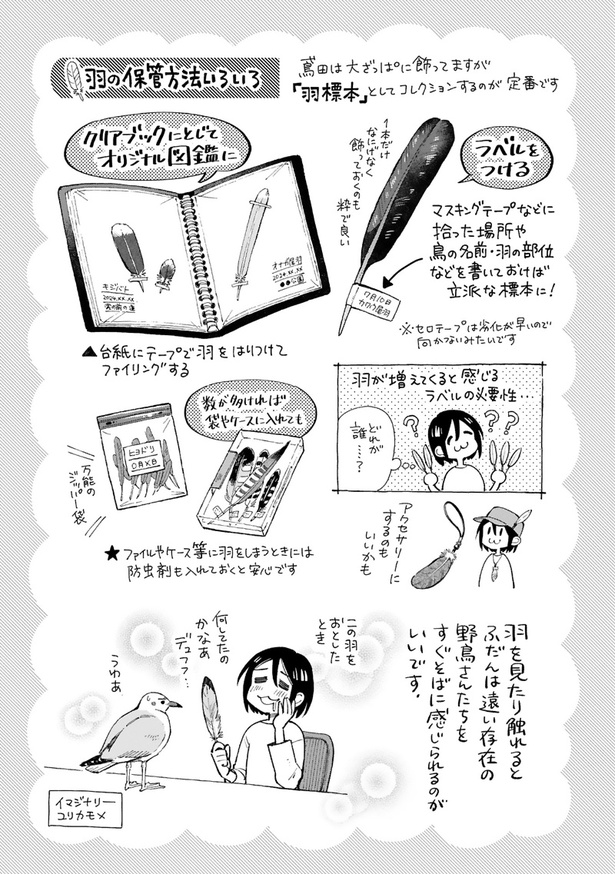 羽の保管方法いろいろ
鳶田は大ざっぱに飾ってますが
「羽標本」としてコレクションするのが定番です
クリアブックにとじて
オリジナル図鑑に
1本だけ
なにげなく
飾っておくのも
粋で良い
ラベルを
つける
マスキングテープなどに
拾った場所や
鳥の名前・羽の部位
などを書いておけば
立派な標本に!
※セロテープは劣化が早いので
向かないみたいです
7月10日
キジバト
2024.XX.XX
家の前の道
オナガ 尾羽
2024.XX.XX
●●公園
▲台紙にテープで羽をはりつけて
ファイリングする
数が多ければ
袋やケースに入れても
ヒヨドリ
○月X日
万能の
ジッパー袋
★ファイルやケース等に羽をしまうときには
防虫剤も入れておくと安心です
羽が増えてくると感じる
ラベルの必要性…
どれが
誰……?
???
アクセサリーに
するのも
いいかも
羽を見たり触れると
ふだんは遠い存在の
野鳥さんたちを
すぐそばに感じられるのが
いいです。
この羽を
おとした
とき
何してたの
かなぁ
デュフフ…
うわぁ
イマジナリー
ユリカモメ